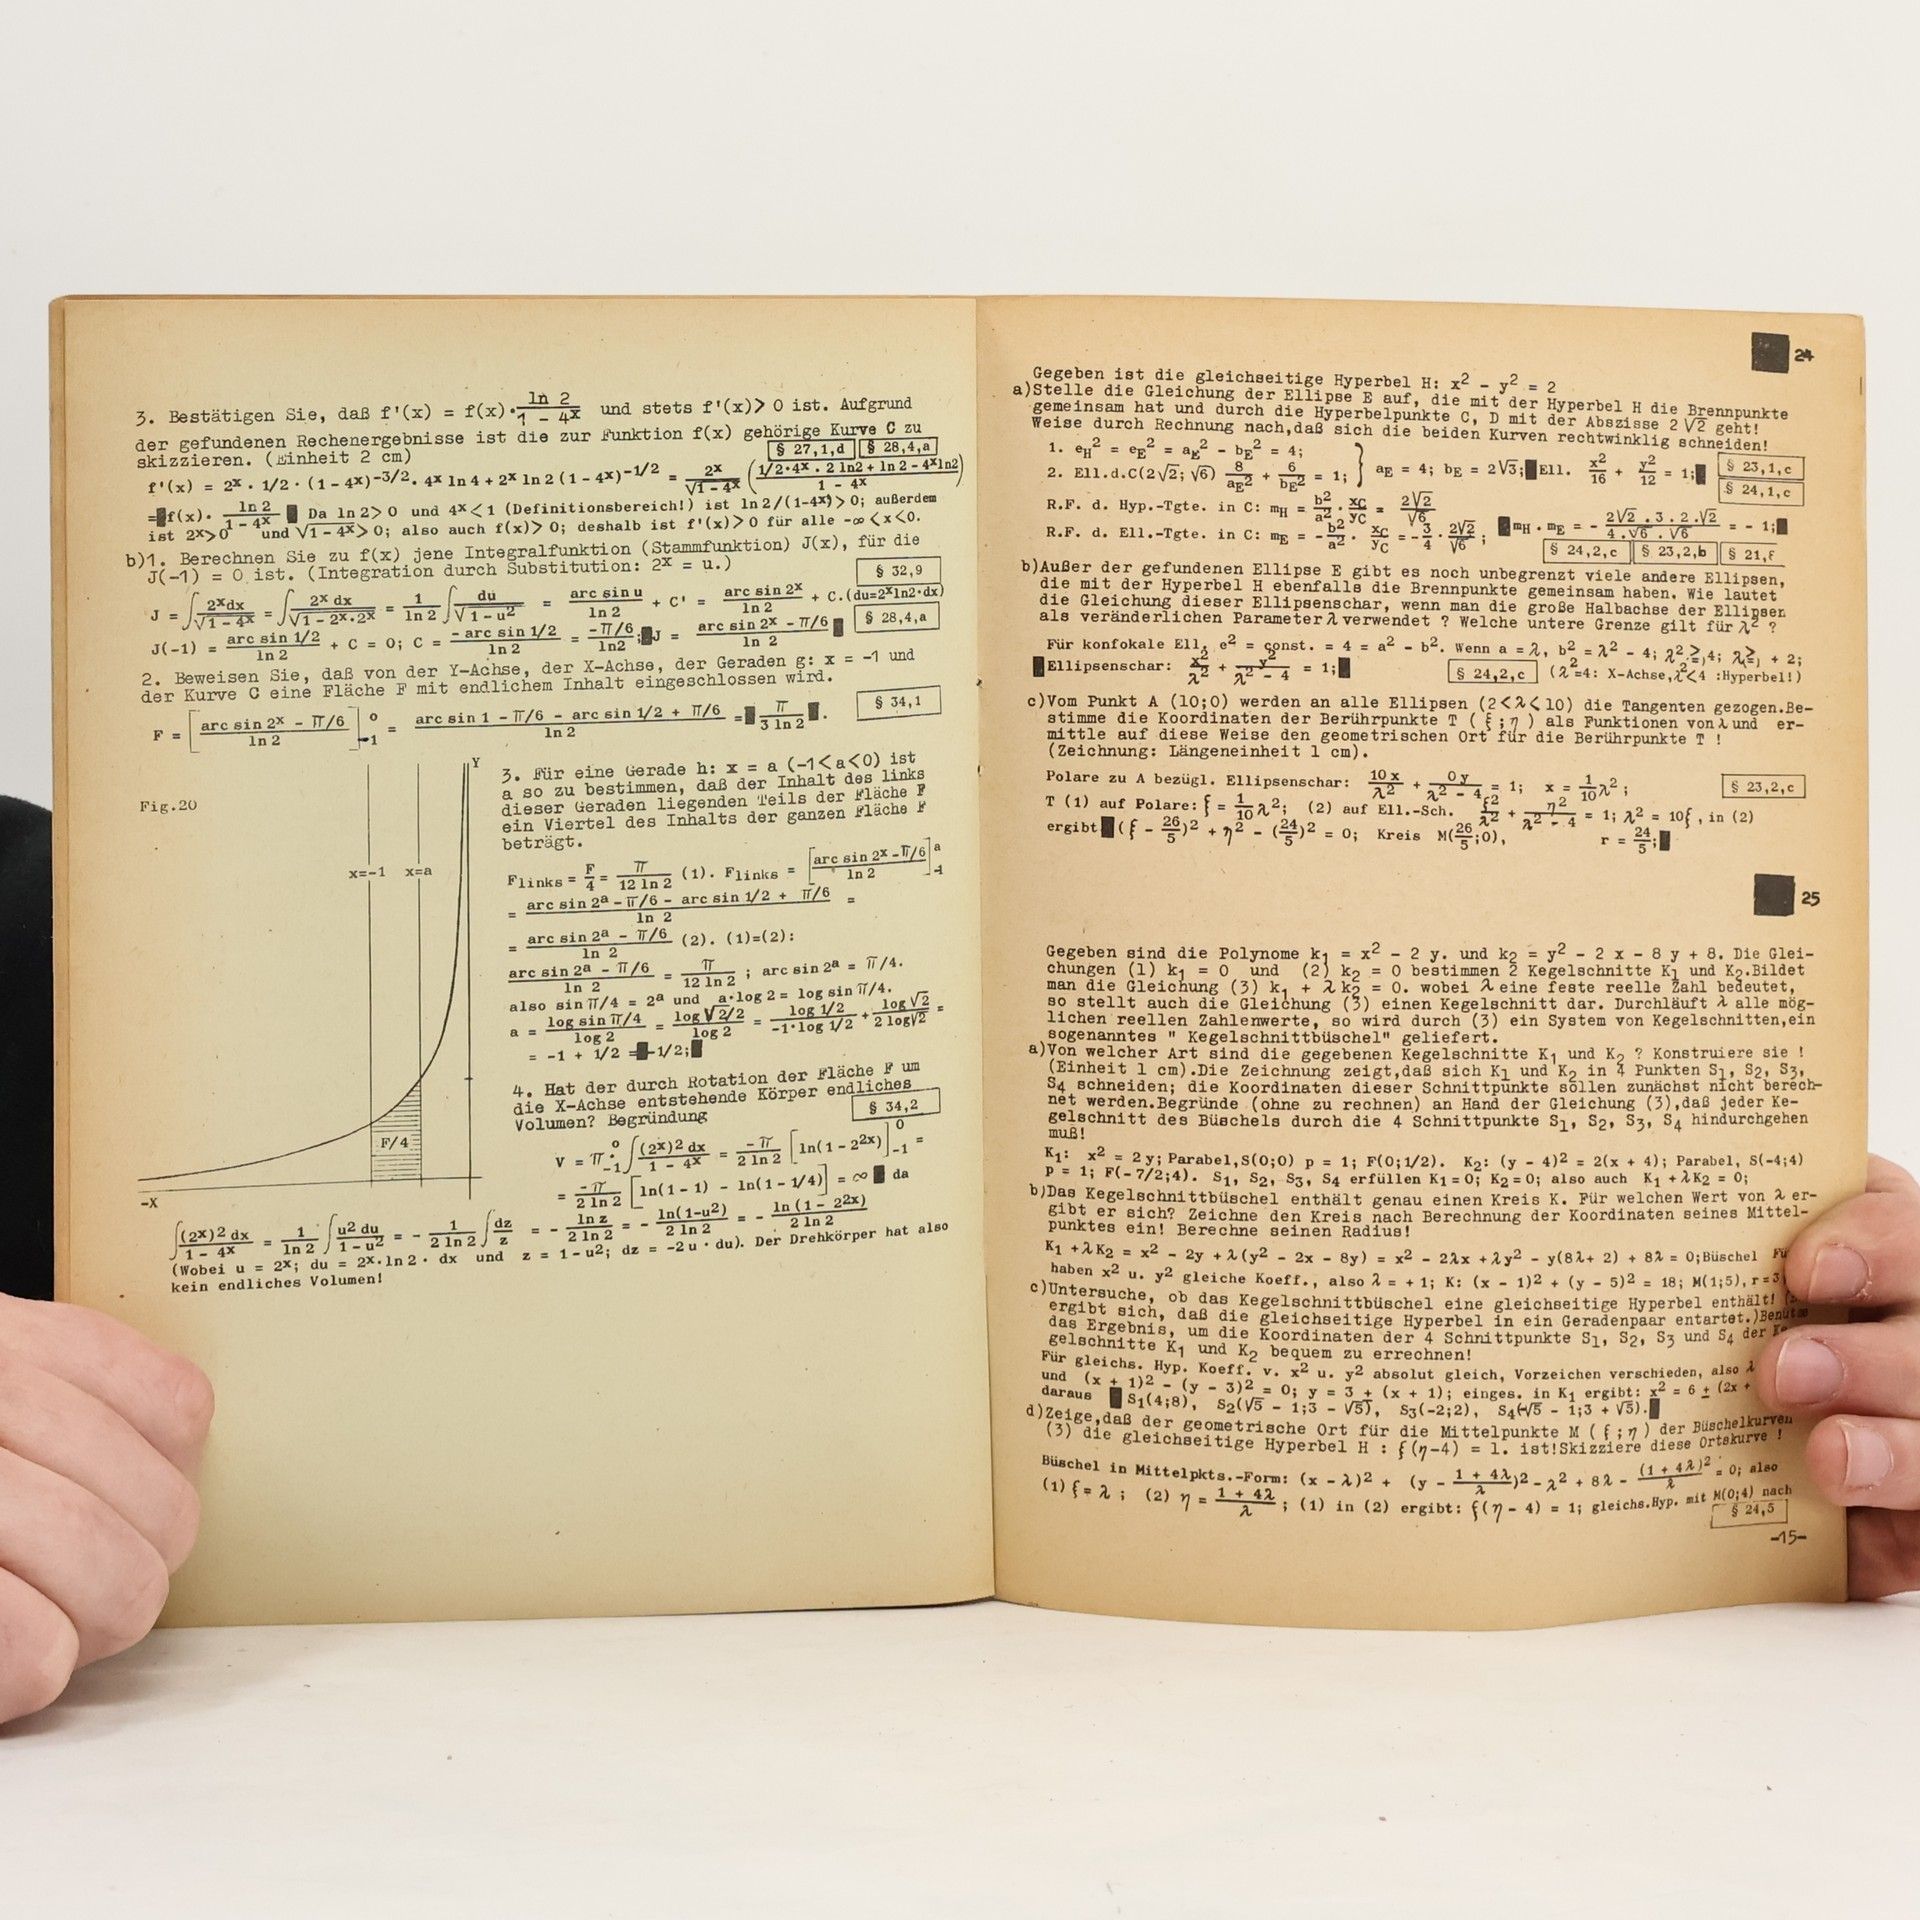 3. Bestätigen Sie, daß f'(x) = f(x)·ln 2/(1 - 4^x) und stets f'(x)> 0 ist. Aufgrund
der gefundenen Rechenergebnisse ist die zur Funktion f(x) gehörige Kurve C zu
skizzieren. (Einheit 2 cm)
§ 27,1,d § 28,4,a
f'(x) = 2^x · 1/2 · (1 - 4^x)^-3/2 · 4^x ln 4 + 2^x ln 2 (1 - 4^x)^-1/2 = 2^x/√(1 - 4^x) ((1/2·4^x · 2 ln2 + ln 2 - 4^x ln2)/(1 - 4^x))
= f(x)· ln 2/(1 - 4^x) Da ln 2> 0 und 4^x< 1 (Definitionsbereich!) ist ln 2/(1-4^x)> 0; außerdem
ist 2^x>0 und √(1 - 4^x)> 0; also auch f(x)> 0; deshalb ist f'(x)> 0 für alle -∞<x<0.
b)1. Berechnen Sie zu f(x) jene Integralfunktion (Stammfunktion) J(x), für die
J(-1) = 0 ist. (Integration durch Substitution: 2^x = u.)
§ 32,9
J = ∫ 2^x dx/√(1 - 4^x) = ∫ 2^x dx/√(1 - 2^x·2^x) = 1/ln 2 ∫ du/√(1 - u²) = arc sin u/ln 2 + C' = arc sin 2^x/ln 2 + C.(du=2^x ln2·dx)
J(-1) = arc sin 1/2/ln 2 + C = 0; C = - arc sin 1/2/ln 2 = -π/6/ln2; J = (arc sin 2^x - π/6)/ln 2
§ 28,4,a
2. Beweisen Sie, daß von der Y-Achse, der X-Achse, der Geraden g: x = -1 und
der Kurve C eine Fläche F mit endlichem Inhalt eingeschlossen wird.
§ 34,1
F = [(arc sin 2^x - π/6)/ln 2]_-1^0 = (arc sin 1 - π/6 - arc sin 1/2 + π/6)/ln 2 = π/(3 ln 2).
Fig.20
Y
x=-1 x=a
F/4
-X
3. Für eine Gerade h: x = a (-1<a<0) ist
a so zu bestimmen, daß der Inhalt des links
dieser Geraden liegenden Teils der Fläche F
ein Viertel des Inhalts der ganzen Fläche F
beträgt.
Flinks = F/4 = π/(12 ln 2) (1). Flinks = [(arc sin 2^x - π/6)/ln 2]_-1^a
= (arc sin 2^a - π/6 - arc sin 1/2 + π/6)/ln 2 =
= (arc sin 2^a - π/6)/ln 2 (2). (1)=(2):
(arc sin 2^a - π/6)/ln 2 = π/(12 ln 2) ; arc sin 2^a = π/4.
also sin π/4 = 2^a und a·log 2 = log sin π/4.
a = log sin π/4/log 2 = log √2/2/log 2 = log 1/2/(-1·log 1/2) + log √2/(2 log√2) =
= -1 + 1/2 = -1/2;
4. Hat der durch Rotation der Fläche F um
die X-Achse entstehende Körper endliches
Volumen? Begründung
§ 34,2
V = π ∫_-1^0 (2^x)² dx/(1 - 4^x) = -π/(2 ln 2) [ln(1 - 2^2x)]_-1^0 =
= -π/(2 ln 2) [ln(1 - 1) - ln(1 - 1/4)] = ∞ da
∫ (2^x)² dx/(1 - 4^x) = 1/ln 2 ∫ u² du/(1 - u²) = - 1/(2 ln 2) ∫ dz/z = - ln z/(2 ln 2) = - ln(1-u²)/(2 ln 2) = - ln (1 - 2^2x)/(2 ln 2)
(Wobei u = 2^x; du = 2^x·ln 2 · dx und z = 1 - u²; dz = -2 u · du). Der Drehkörper hat also
kein endliches Volumen!
24
Gegeben ist die gleichseitige Hyperbel H: x² - y² = 2
a)Stelle die Gleichung der Ellipse E auf, die mit der Hyperbel H die Brennpunkte
gemeinsam hat und durch die Hyperbelpunkte C, D mit der Abszisse 2 √2 geht!
Weise durch Rechnung nach,daß sich die beiden Kurven rechtwinklig schneiden!
1. e_H² = e_E² = a_E² - b_E² = 4;
2. Ell.d.C(2√2; √6) 8/a_E² + 6/b_E² = 1; } a_E = 4; b_E = 2√3; Ell. x²/16 + y²/12 = 1;
§ 23,1,c
§ 24,1,c
R.F. d. Hyp.-Tgte. in C: m_H = b²/a² · x_C/y_C = 2√2/√6
R.F. d. Ell.-Tgte. in C: m_E = - b²/a² · x_C/y_C = - 3/4 · 2√2/√6 ; m_H · m_E = - (2√2 . 3 . 2 .√2)/(4 . √6 . √6) = - 1;
§ 24,2,c § 23,2,b
b)Außer der gefundenen Ellipse E gibt es noch unbegrenzt viele andere Ellipsen,
die mit der Hyperbel H ebenfalls die Brennpunkte gemeinsam haben. Wie lautet
die Gleichung dieser Ellipsenschar, wenn man die große Halbachse der Ellipsen
als veränderlichen Parameter λ verwendet ? Welche untere Grenze gilt für λ² ?
Für konfokale Ell, e² = const. = 4 = a² - b². Wenn a = λ, b² = λ² - 4; λ² > 4; λ > + 2;
Ellipsenschar: x²/λ² + y²/(λ² - 4) = 1;
§ 24,2,c (λ²=4: X-Achse,λ²<4 :Hyperbel!)
c)Vom Punkt A (10;0) werden an alle Ellipsen (2<λ<10) die Tangenten gezogen.Be-
stimme die Koordinaten der Berührpunkte T (ξ;η) als Funktionen von λ und er-
mittle auf diese Weise den geometrischen Ort für die Berührpunkte T !
(Zeichnung: Längeneinheit 1 cm).
Polare zu A bezügl. Ellipsenschar: 10 x/λ² + 0 y/(λ² - 4) = 1; x = 1/10 λ² ;
§ 23,2,c
T (1) auf Polare: ξ = 1/10 λ²; (2) auf Ell.-Sch. ξ²/λ² + η²/(λ² - 4) = 1; λ² = 10ξ , in (2)
ergibt (ξ - 26/5)² + η² - (24/5)² = 0; Kreis M(26/5;0), r = 24/5;
25
Gegeben sind die Polynome k₁ = x² - 2 y. und k₂ = y² - 2 x - 8 y + 8. Die Glei-
chungen (1) k₁ = 0 und (2) k₂ = 0 bestimmen 2 Kegelschnitte K₁ und K₂.Bildet
man die Gleichung (3) k₁ + λ k₂ = 0. wobei λ eine feste reelle Zahl bedeutet,
so stellt auch die Gleichung (3) einen Kegelschnitt dar. Durchläuft λ alle mög-
lichen reellen Zahlenwerte, so wird durch (3) ein System von Kegelschnitten,ein
sogenanntes " Kegelschnittbüschel" geliefert.
a)Von welcher Art sind die gegebenen Kegelschnitte K₁ und K₂ ? Konstruiere sie !
(Einheit 1 cm).Die Zeichnung zeigt,daß sich K₁ und K₂ in 4 Punkten S₁, S₂, S₃,
S₄ schneiden; die Koordinaten dieser Schnittpunkte sollen zunächst nicht berech-
net werden.Begründe (ohne zu rechnen) an Hand der Gleichung (3),daß jeder Ke-
gelschnitt des Büschels durch die 4 Schnittpunkte S₁, S₂, S₃, S₄ hindurchgehen
muß!
K₁: x² = 2 y; Parabel,S(0;0) p = 1; F(0;1/2). K₂: (y - 4)² = 2(x + 4); Parabel, S(-4;4)
p = 1; F(-7/2;4). S₁, S₂, S₃, S₄ erfüllen K₁=0; K₂=0; also auch K₁ +λK₂ = 0;
b)Das Kegelschnittbüschel enthält genau einen Kreis K. Für welchen Wert von λ er-
gibt er sich? Zeichne den Kreis nach Berechnung der Koordinaten seines Mittel-
punktes ein! Berechne seinen Radius!
K₁ +λK₂ = x² - 2y + λ(y² - 2x - 8y) = x² - 2λx +λy² - y(8λ+ 2) + 8λ = 0;Büschel
haben x² u. y² gleiche Koeff., also λ = + 1; K: (x - 1)² + (y - 5)² = 18; M(1;5), r=3
c)Untersuche, ob das Kegelschnittbüschel eine gleichseitige Hyperbel enthält!
ergibt sich, daß die gleichseitige Hyperbel in ein Geradenpaar entartet.)Benutze
das Ergebnis, um die Koordinaten der 4 Schnittpunkte S₁, S₂, S₃ und S₄ der
gelschnitte K₁ und K₂ bequem zu errechnen!
Für gleichs. Hyp. Koeff. v. x² u. y² absolut gleich, Vorzeichen verschieden, also λ
und (x + 1)² - (y - 3)² = 0; y = 3 ± (x + 1); einges. in K₁ ergibt: x² = 6 ± (2x +
daraus S₁(4;8), S₂(√5 - 1;3 - √5), S₃(-2;2), S₄(-√5 - 1;3 + √5).
d)Zeige,daß der geometrische Ort für die Mittelpunkte M (ξ;η) der Büschelkurven
(3) die gleichseitige Hyperbel H : ξ(η-4) = 1. ist!Skizziere diese Ortskurve !
Büschel in Mittelpkts.-Form: (x - λ)² + (y - (1 + 4λ)/λ)² - λ² + 8λ - (1 + 4λ)²/λ = 0; also
(1) ξ = λ ; (2) η = (1 + 4λ)/λ ; (1) in (2) ergibt: ξ(η - 4) = 1; gleichs.Hyp. mit M(0;4) nach
§ 24,5
-15-